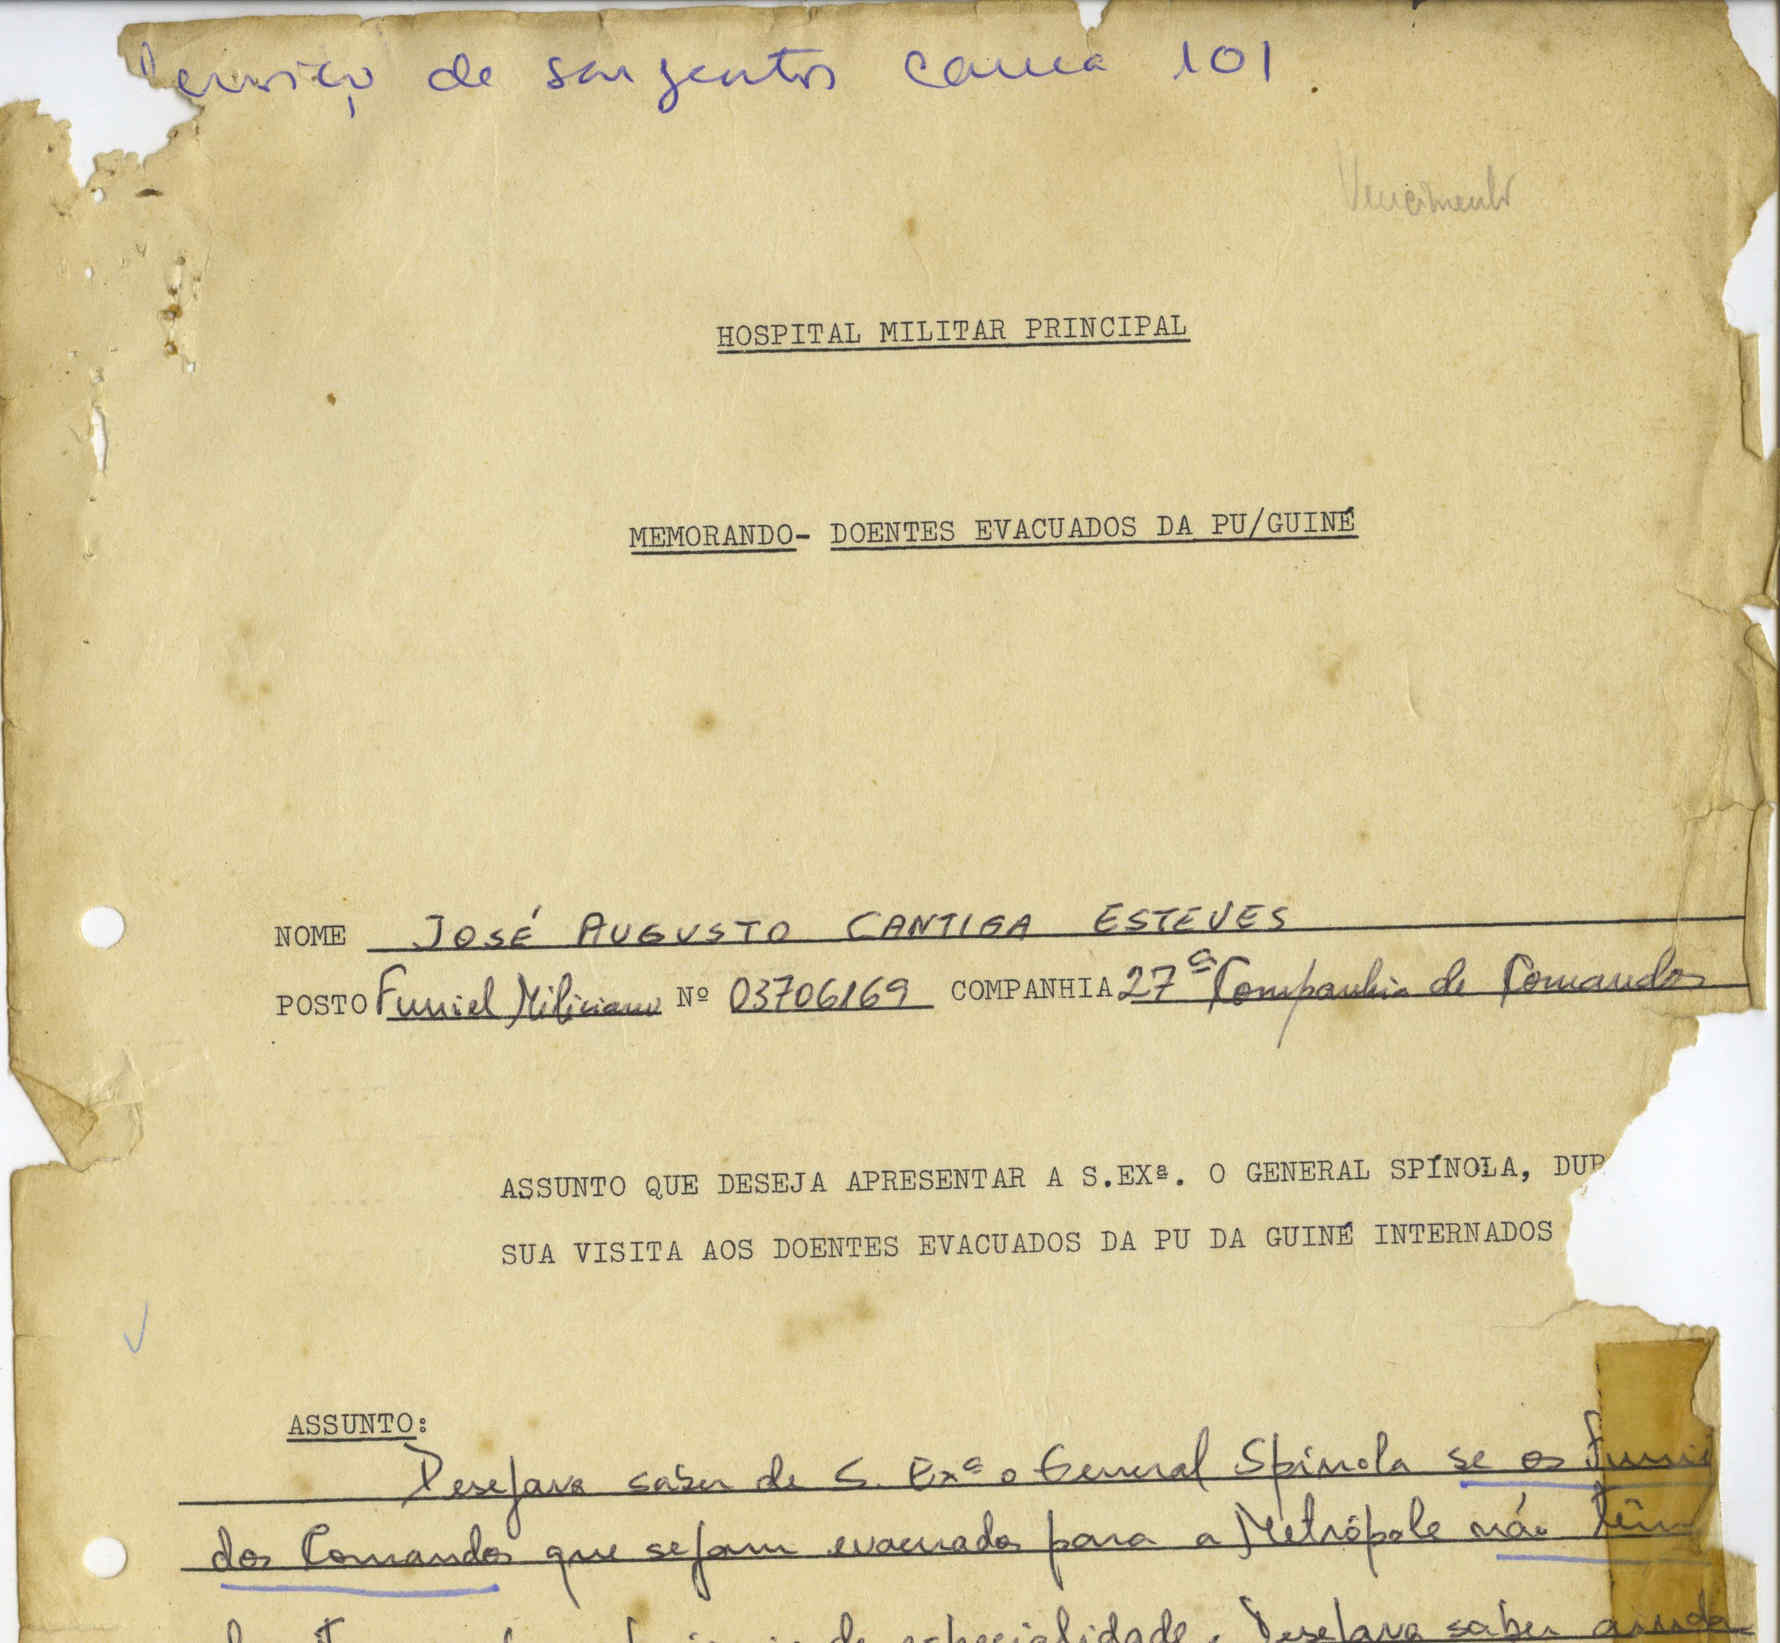 Serviço de sargentos cama 101
Vencimento
HOSPITAL MILITAR PRINCIPAL
MEMORANDO- DOENTES EVACUADOS DA PU/GUINÉ
NOME JOSÉ AUGUSTO CANTIGA ESTEVES
POSTO Furriel Miliciano Nº 03706169 COMPANHIA 27ª Companhia de Comandos
ASSUNTO QUE DESEJA APRESENTAR A S.EXª. O GENERAL SPÍNOLA, DUR
SUA VISITA AOS DOENTES EVACUADOS DA PU DA GUINÉ INTERNADOS
ASSUNTO:
Desejava saber de S. Exª o General Spínola se os Furrié
dos Comandos que sejam evacuados para a Metrópole não têm
de especialidade. Desejava saber ainda